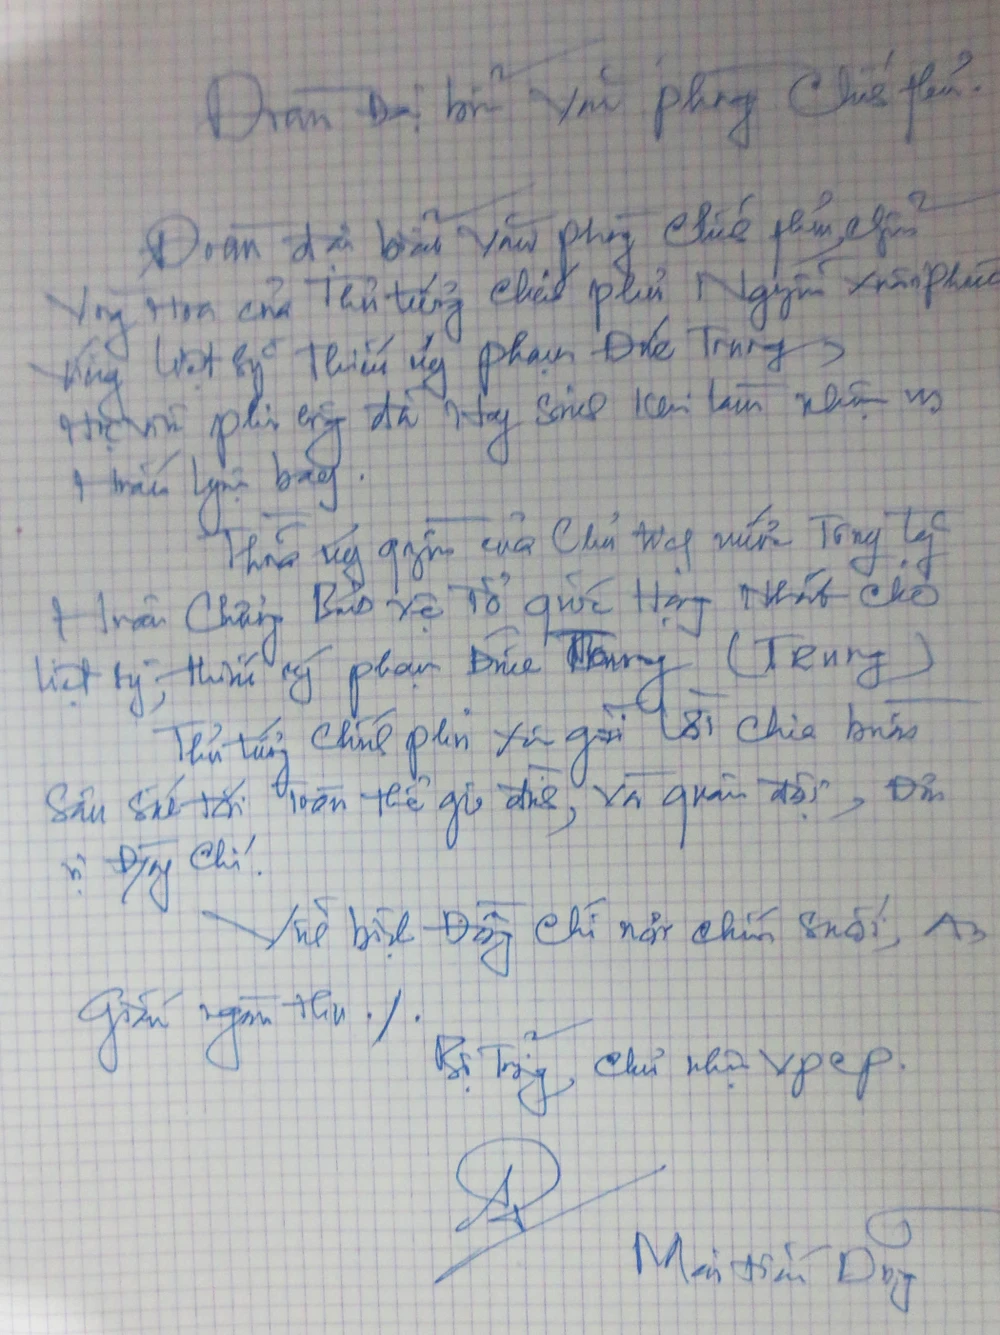 Đoàn Đại biểu Văn phòng Chính phủ.
Đoàn đại biểu Văn phòng Chính phủ, cùng
Vòng Hoa của Thủ tướng Chính phủ Nguyễn Xuân Phúc
Viếng liệt sỹ Thiếu úy phạm Đức Trung,
Học viên phi công đã Hy sinh khi làm nhiệm vụ
Huấn luyện bay.
Thừa ủy quyền của Chủ tịch nước Tặng
Huân Chương Bảo vệ Tổ quốc Hạng Nhất cho
liệt sỹ, thiếu úy phạm Đức Trung (Trung)
Thủ tướng Chính phủ xin gửi lời chia buồn
Sâu sắc tới toàn thể gia đình, và quân đội, Đơn
vị Đồng Chí.
Vĩnh biệt Đồng Chí nơi chín suối, An
Giấc ngàn thu ./.
Bộ Trưởng, Chủ nhiệm VPCP.
Mai tiến Dũng